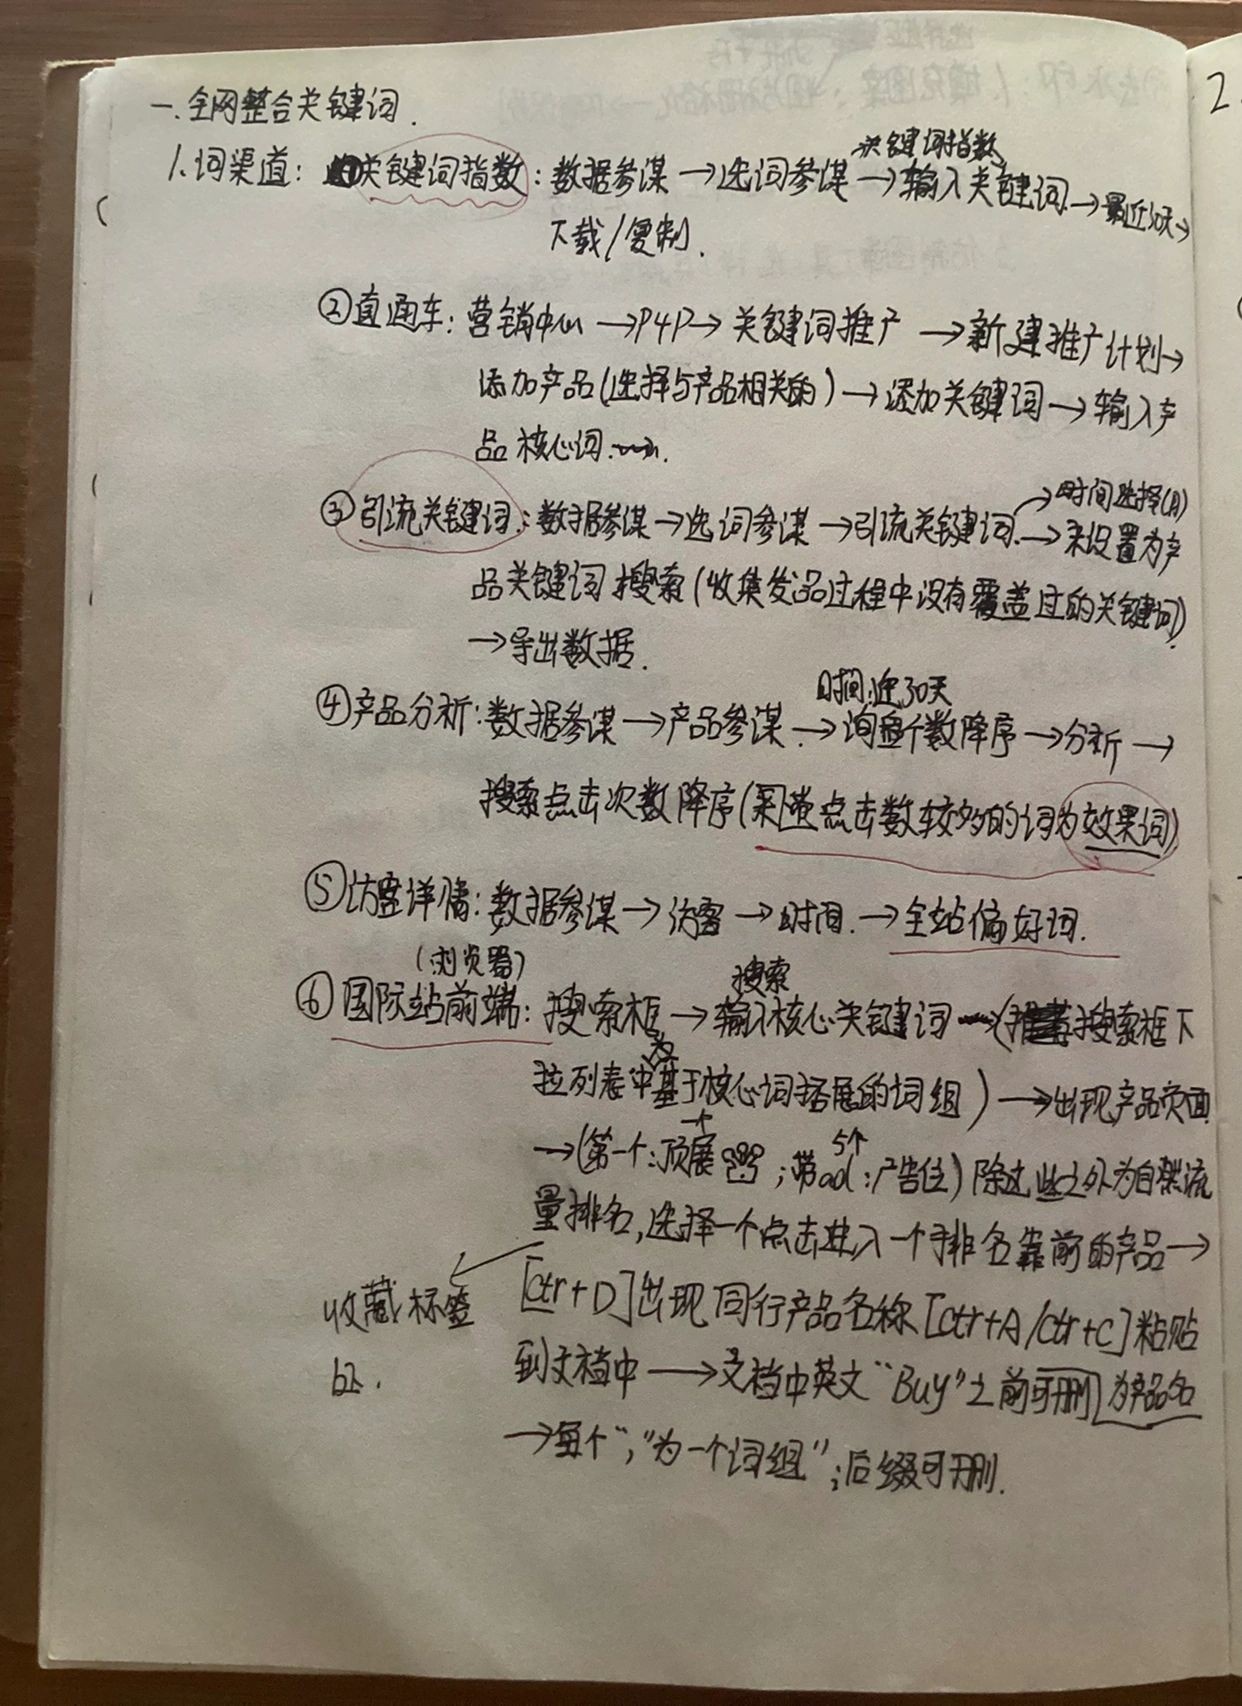 一.全网整合关键词.
1.词渠道：①关键词指数：数据参谋→选词参谋→输入关键词→最近30天→
关键词指数
下载/复制.
②直通车：营销中心→P4P→关键词推广→新建推广计划→
添加产品(选择与产品相关的)→添加关键词→输入产
品核心词.
③引流关键词：数据参谋→选词参谋→引流关键词.→未设置为产
→时间选择(月)
品关键词搜索(收集发品过程中没有覆盖过的关键词)
→导出数据.
④产品分析：数据参谋→产品参谋.→询盘个数降序→分析→
时间:近30天
搜索点击次数降序(采集点击数较多的词为效果词)
⑤访客详情：数据参谋→访客→时间.→全站偏好词.
(浏览器)
⑥国际站前端：搜索框→输入核心关键词→(搜索框下
搜索
拉列表中为基于核心词拓展的词组)→出现产品页面
→(第一个:顶展;带ad:广告位)除过此之外为自然流
5个
量排名,选择一个点击进入一个排名靠前的产品→
收藏标签
[ctr+D]出现同行产品名称[ctr+A/ctr+C]粘贴
到文档中→文档中英文“Buy”之前可删 为产品名
→每个“,”为一个词组”;后缀可删.
2.